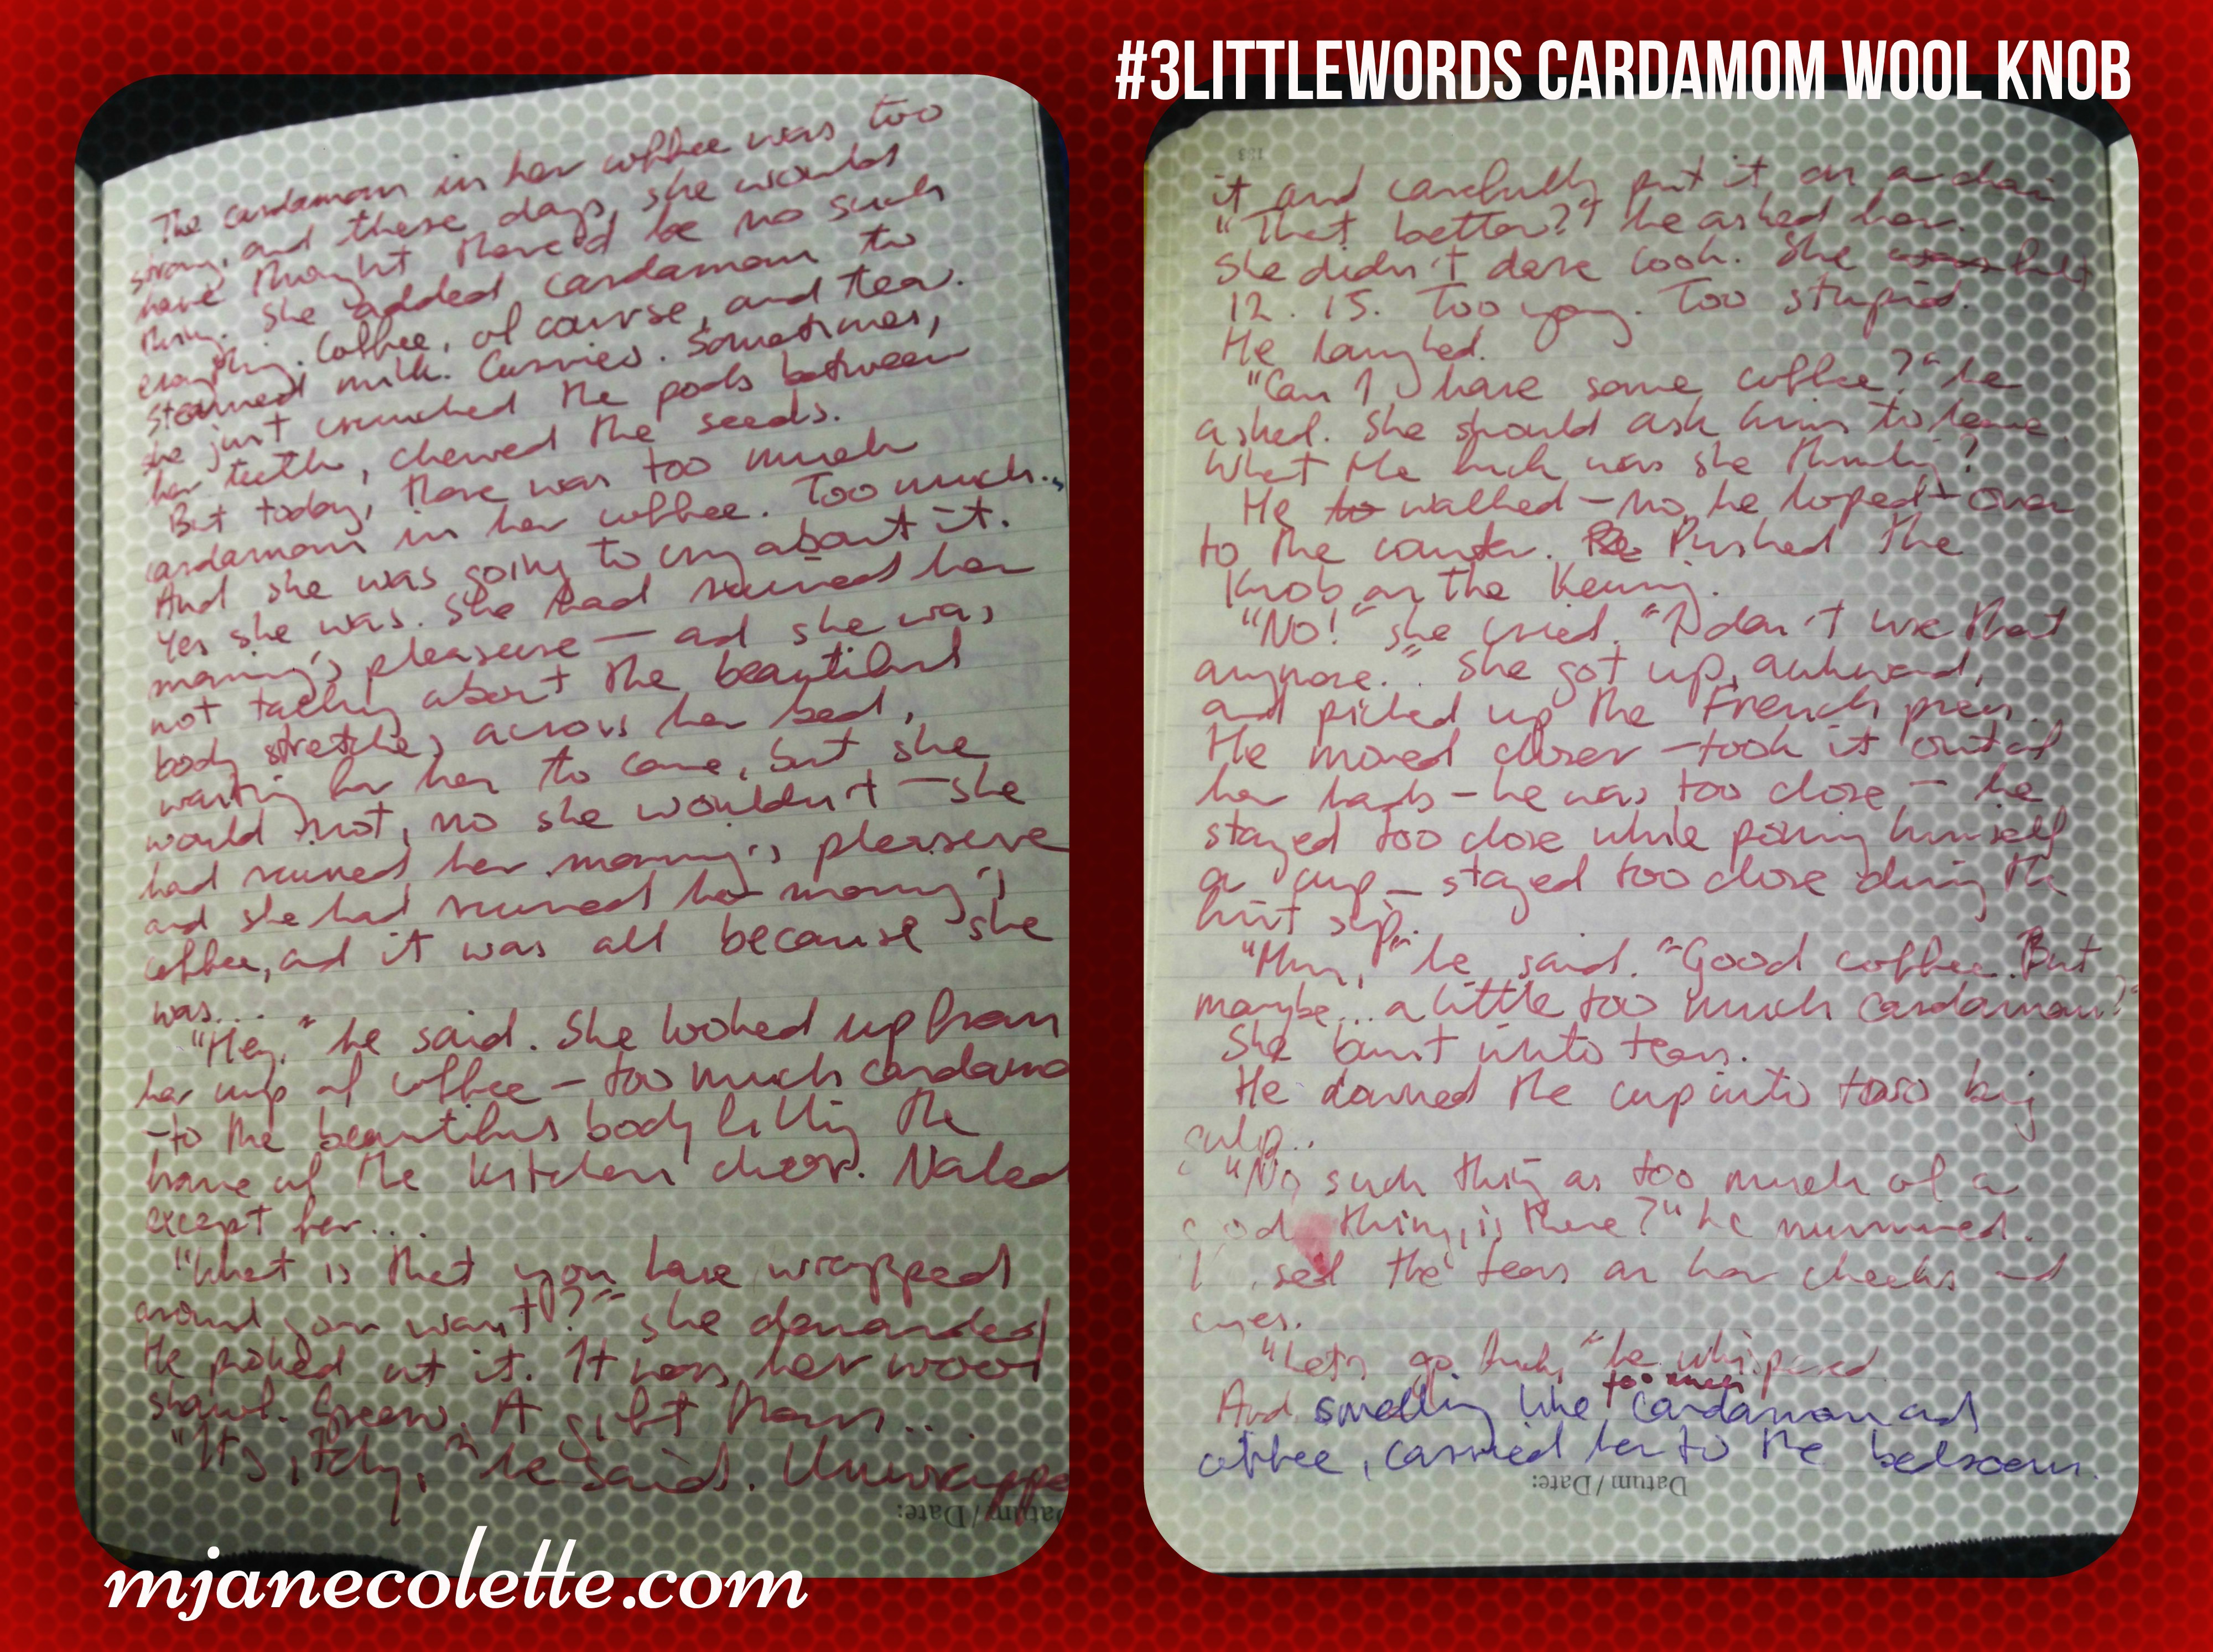 #3LITTLEWORDS CARDAMOM WOOL KNOB
The cardamom in her coffee was too
strong, and these days, she would
have thought there'd be no such
thing. She added cardamom to
everything. Coffee, of course, and tea.
Steamed milk. Curries. Sometimes,
she just crunched the pods between
her teeth, chewed the seeds.
But today, there was too much
cardamom in her coffee. Too much...
And she was going to cry about it.
Yes she was. She had ruined her
morning's pleasure — and she was
not talking about the beautiful
body stretched across her bed,
waiting for her to come, but she
would not, no she wouldn't — she
had ruined her morning's pleasure
and she had ruined her morning's
coffee, and it was all because she
was...
"Hey," he said. She looked up from
her cup of coffee — too much cardamo
— to the beautiful body filling the
frame of the kitchen door. Naked
except for...
"What is that you have wrapped
around your waist?" she demanded
He picked at it. It was her wool
shawl. Green. A gift from...
"It's itchy," he said. Unwrappe
Datum / Date:
mjanecolette.com
133
it and carefully put it on a chair
"That better?" he asked her.
She didn't dare look. She
12. 15. Too young. Too stupid.
He laughed.
"Can I have some coffee?" he
asked. She should ask him to leave.
What the fuck was she thinking?
He to walked — no, he loped — over
to the counter. Pushed the
knob on the Keurig.
"No!" she cried. "I don't use that
anymore." She got up, awkward,
and picked up the French press.
He moved closer — took it out of
her hands — he was too close — he
stayed too close while pouring himself
a cup — stayed too close during the
first sip.
"Mm," he said. "Good coffee. But
maybe... a little too much cardamom?"
She burst into tears.
He downed the cup into two big
gulps.
"No such thing as too much of a
good thing, is there?" he murmured.
the tears on her cheeks and
eyes.
"Let's go he whispered.
too much
And smelling like cardamom and
coffee, carried her to the bedroom.
Datum / Date: